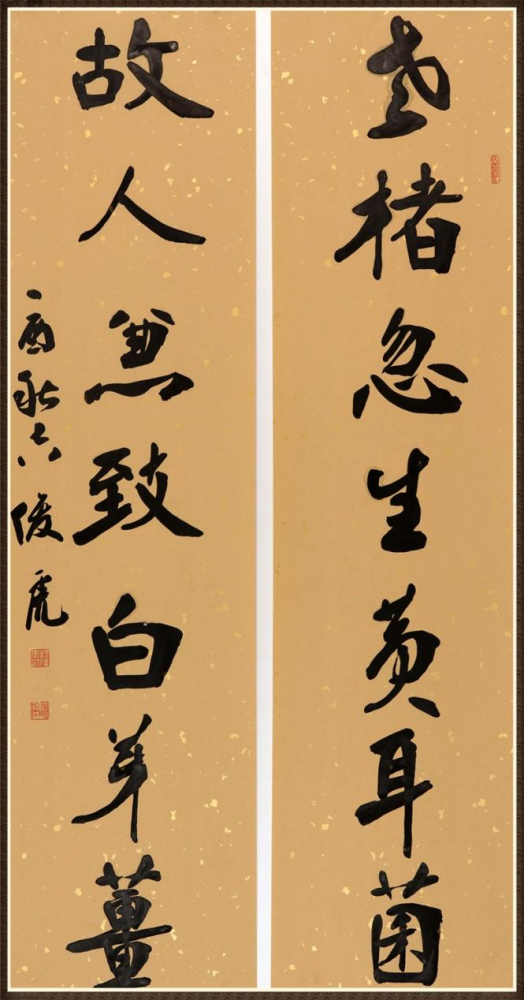 老楮忽生黄耳菌
故人兼致白芽薑
丁酉秋俊虎